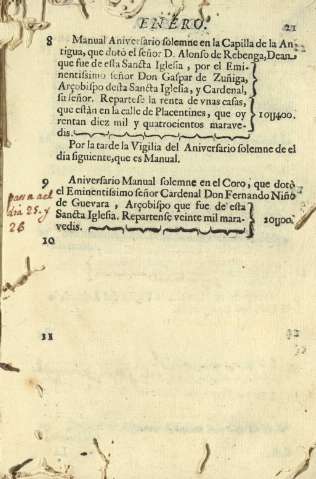 ENERO. 21
8 Manual Aniversario solemne en la Capilla de la An
tigua, que dotò el señor D. Alonso de Rebenga, Dean
que fue de esta Sancta Iglesia, por el Emi-
nentissimo señor Don Gaspar de Zuñiga,
Arçobispo desta Sancta Iglesia, y Cardenal,
su señor. Repartese la renta de vnas casas,
que estàn en la calle de Placentines, que oy
rentan diez mil y quatrocientos marave-
dis.
10U400.
Por la tarde la Vigilia del Aniversario solemne de el
dia siguiente, que es Manual.
9 Aniversario Manual solemne en el Coro, que dotò
el Eminentissimo señor Cardenal Don Fernando Niño
de Guevara, Arçobispo que fue de esta
Sancta Iglesia. Repartense veinte mil mara-
vedis.
20U00.
dia 25. y
26
10
11